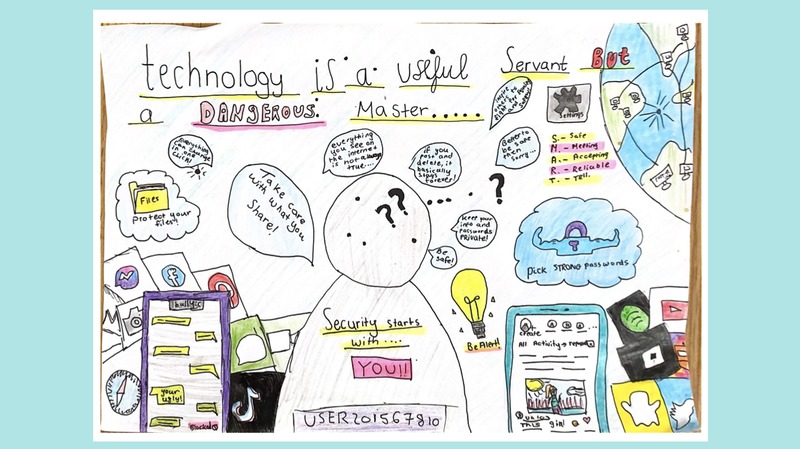 technology is a useful Servant But
a DANGEROUS Master.....
everything can change with 1 click!
everything
you see on
the internet
is not always
true...
if you
post and
delete, it
basically
stays
forever!
Better to
be safe
then
sorry...
Settings
S.- Safe
N.- Meeting
A.- Accepting
R.- Reliable
T.- Tell.
Files
Protect your
files!
Take care
with what you
Share!
??
?
keep your
info and
passwords
PRIVATE!
Be
safe!
pick STRONG passwords
Security starts
with....
YOU!!
USER201567810
Be Alert!
your
ugly!
create
All Activity
THIS girl